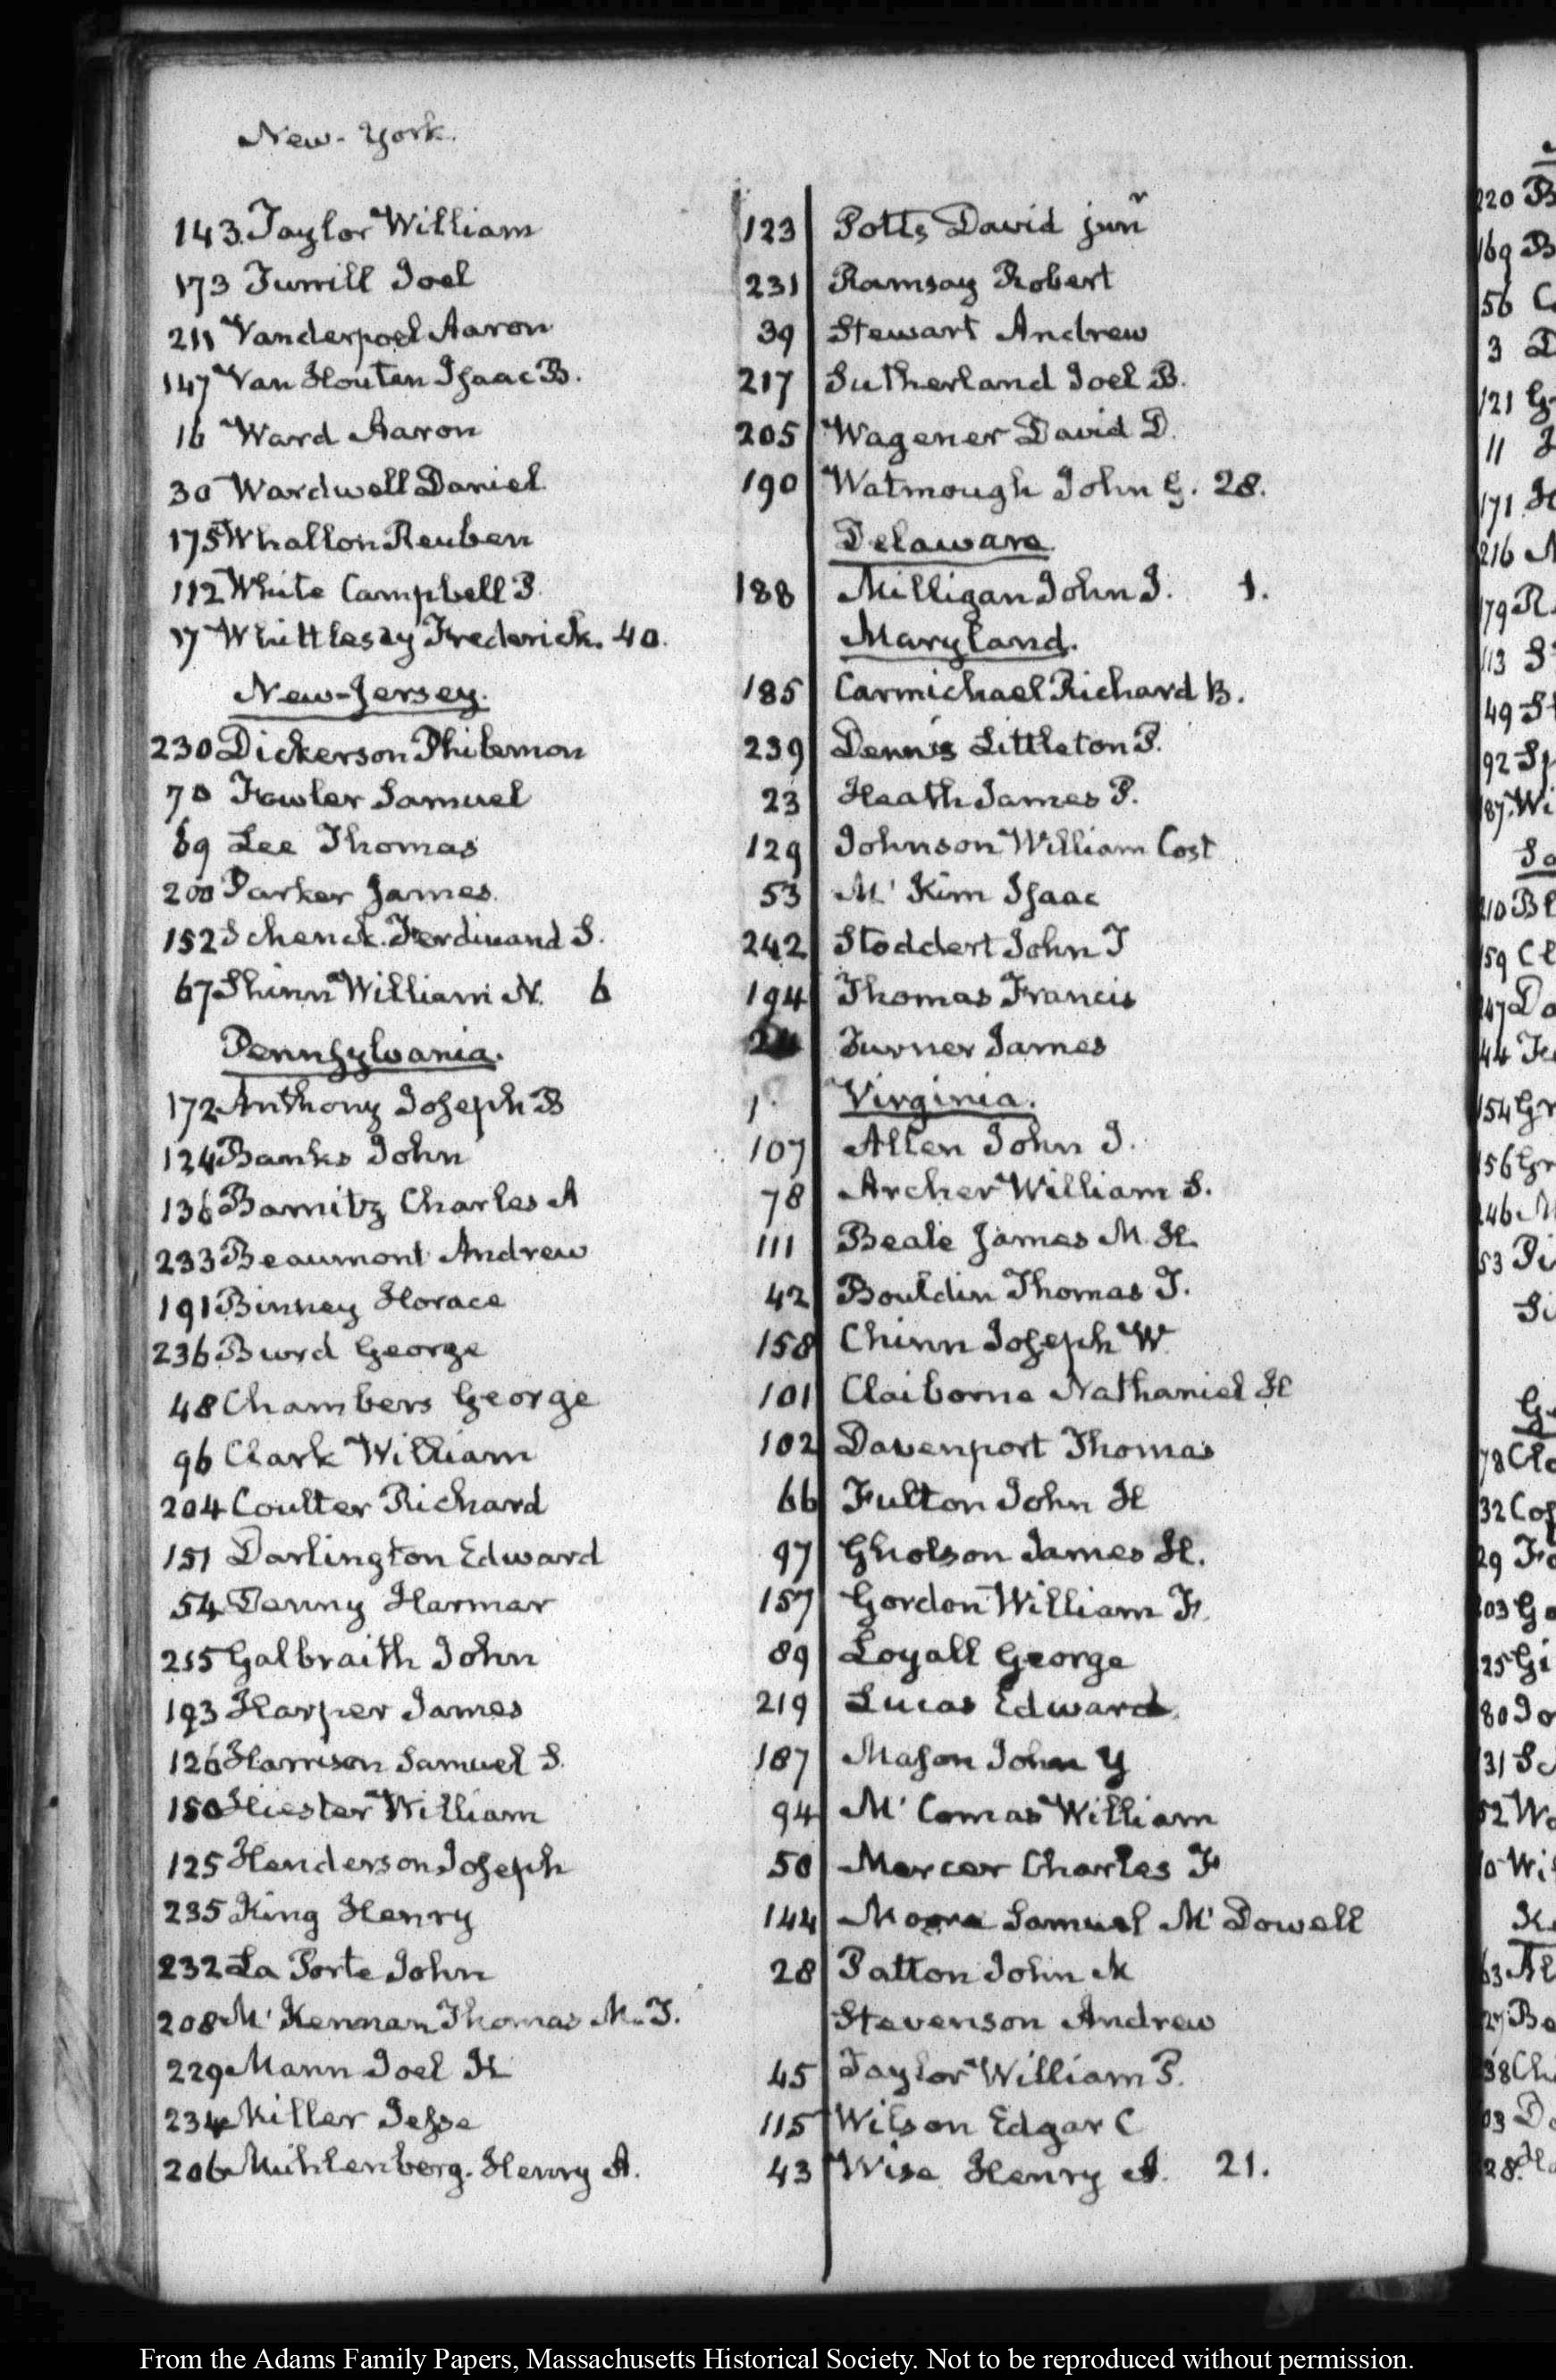 New-York.
143. Taylor William
173 Turrill Joel
211 Vanderpoel Aaron
147 Van Houten Isaac B.
16 Ward Aaron
30 Wardwell Daniel
175 Whallon Reuben
112 White Campbell P.
17 Whittlesey Frederick. 40.
New-Jersey.
230 Dickerson Philemon
70 Fowler Samuel
69 Lee Thomas
200 Parker James
152 Schenck Ferdinand S.
67 Shinn William N. 6
Pennsylvania.
172 Anthony Joseph B
124 Banks John
136 Barnitz Charles A
233 Beaumont Andrew
191 Binney Horace
236 Burd George
48 Chambers George
96 Clark William
204 Coulter Richard
151 Darlington Edward
54 Denny Harmar
215 Galbraith John
193 Harper James
126 Harrison Samuel S.
150 Hiester William
125 Henderson Joseph
235 King Henry
232 La Porte John
208 M' Kennan Thomas M. T.
229 Mann Joel K
234 Miller Jesse
206 Muhlenberg. Henry A.
123 Potts David junr
231 Ramsay Robert
39 Stewart Andrew
217 Sutherland Joel B.
205 Wagener David D.
190 Watmough John G. 28.
Delaware
188 Milligan John J. 1.
Maryland.
185 Carmichael Richard B.
239 Dennis Littleton P.
23 Heath James P.
129 Johnson William Cost
53 M' Kim Isaac
242 Stoddert John T
194 Thomas Francis
Turner James
1 Virginia.
107 Allen John J.
78 Archer William S.
111 Beale James M. H.
42 Bouldin Thomas T.
158 Chinn Joseph W.
101 Claiborne Nathaniel H
102 Davenport Thomas
66 Fulton John H
97 Gholson James H.
157 Gordon William F.
89 Loyall George
219 Lucas Edward
187 Mason John Y
94 M' Comas William
50 Mercer Charles F
144 Moore Samuel M' Dowell
28 Patton John M
Stevenson Andrew
45 Taylor William P.
115 Wilson Edgar C
43 Wise Henry A. 21.
From the Adams Family Papers, Massachusetts Historical Society. Not to be reproduced without permission.